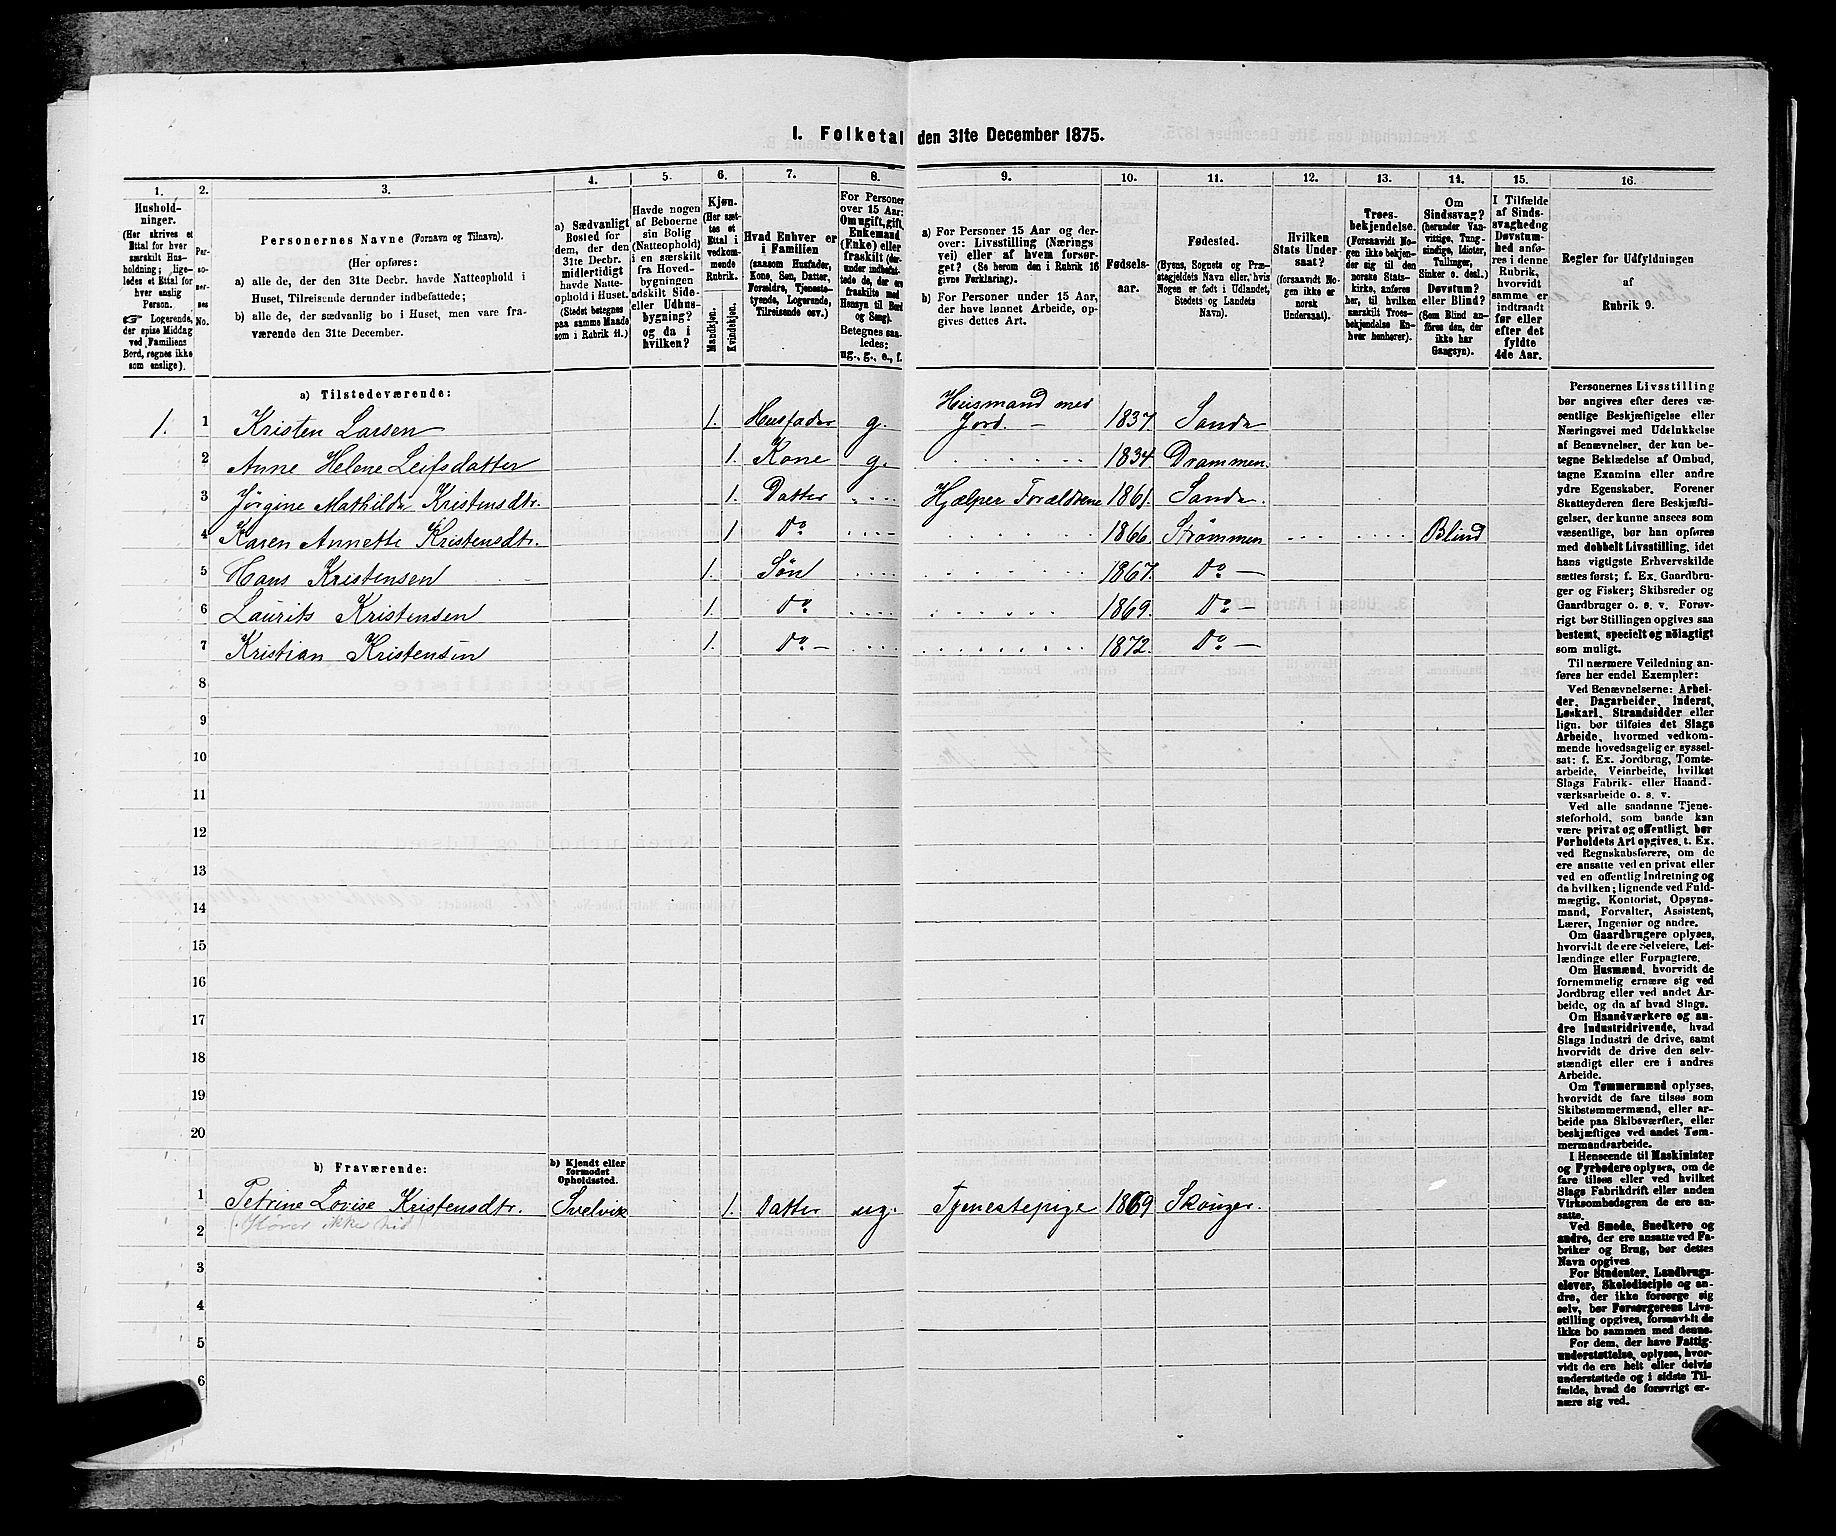 1. Folketal den 31te December 1875.
1.
Hushold-
ninger.
(Her skrives et
Ettal for hver
særskilt Hus-
holdning; lige-
ledes et Ettal for
hver enslig
Person.
☞ Logerende,
der spise Middag
ved Familiens
Bord, regnes ikke
som enslige).
2.
Per-
so-
ner-
nes
No.
3.
Personernes Navne (Fornavn og Tilnavn).
(Her opføres:
a) alle de, der den 31te Decbr. havde Natteophold i
Huset, Tilreisende derunder indbefattede;
b) alle de, der sædvanlig bo i Huset, men vare fra-
værende den 31te December.
4.
a) Sædvanligt
Bosted for
dem, der den
31te Decbr.
midlertidigt
havde Natte-
ophold i Huset.
(Stedet betegnes
paa samme Maade
som i Rubrik 11.)
5.
Havde nogen
af Beboerne
sin Bolig
(Natteophold)
i en særskilt
fra Hoved-
bygningen
adskilt Side-
eller Udhus-
bygning?
og da i
hvilken?
6.
Kjøn.
(Her sæt-
tes et
Ettal i
vedkom-
mende
Rubrik.
Mandkjøn.
Kvindekjøn.
7.
Hvad Enhver er
i Familien
(saasom Husfader,
Kone, Søn, Datter,
Forældre, Tjeneste-
tyende, Logerende,
Tilreisende osv.)
8.
For Personer
over 15 Aar:
Om ugift, gift,
Enkemand
(Enke) eller
fraskilt (der-
under indbefat-
tede de, der ere
fraskilte med
Hensyn til Bord
og Seng).
Betegnes saa-
ledes:
ug., g., e., f.
9.
a) For Personer 15 Aar og der-
over: Livsstilling (Nærings
vei) eller af hvem forsør-
get? (Se herom den i Rubrik 16
givne Forklaring).
b) For Personer under 15 Aar,
der have lønnet Arbeide, op-
gives dettes Art.
10.
Fødsels-
aar.
11.
Fødested.
(Byens, Sognets og Præ-
stegjeldets Navn eller, hvis
Nogen er født i Udlandet,
Stedets og Landets
Navn).
12.
Hvilken
Stats Under-
saat?
(forsaavidt No-
gen ikke er
norsk
Undersaat).
13.
Troes-
bekjendelse.
(Forsaavidt No-
gen ikke bekjen-
der sig til den
norske Stats-
kirke, anføres
her, til hvilken
særskilt Troes-
bekjendelse En-
hver henhører).
14.
Om
Sindssvag?
(herunder Van-
vittige, Tung-
sindige, Idioter,
Tullinger,
Sinker o. desl.)
Døvstum?
eller Blind?
(Som Blind an-
føres den, der
ikke har
Gangsyn).
15.
I Tilfælde
af Sinds-
svaghed og
Døvstum-
hed anfø-
res i denne
Rubrik,
hvorvidt
samme er
indtraadt
før eller
efter det
fyldte
4de Aar.
16.
Regler for Udfyldningen
af
Rubrik 9.
a) Tilstedeværende:
1. 1 Kristen Larsen 1. Husfader g. Huusmand med Jord. — 1837. Sande
2 Anne Helene Leifsdatter 1. Kone g. 1834. Drammen.
3 Jørgine Mathilde Kristensdtr. 1. Datter Hjælper Forældrene 1861. Sande.
4 Karen Annette Kristensdtr. 1 Do 1866. Strømmen Blind
5 Hans Kristensen 1. Søn 1867. Do —
6 Laurits Kristensen 1. Do 1869. Do —
7 Kristian Kristensen 1. Do — 1872. Do —
8
9
10
11
12
13
14
15
16
17
18
19
20
b) Fraværende:
b) Kjendt eller
formodet
Opholdssted.
1 Petrine Lovise Kristensdtr. Svelvik 1. Datter ug. Tjenestepige 1869 Skouger.
(Hører ikke hid)
2
3
4
5
6
Personernes Livsstilling
bør angives efter deres væ-
sentlige Beskjæftigelse eller
Næringsvei med Udelukkelse
af Benævnelser, der kun be-
tegne Beklædelse af Ombud,
tagne Examina eller andre
ydre Egenskaber. Forener
Skatteyderen flere Beskjæfti-
gelser, der kunne ansees som
væsentlige, bør han opføres
med dobbelt Livsstilling, idet
hans vigtigste Erhvervskilde
sættes først; f. Ex. Gaardbru-
ger og Fisker; Skibsreder og
Gaardbruger o. s. v. Forøv-
rigt bør Stillingen opgives saa
bestemt, specielt og nøiagtigt
som muligt.
Til nærmere Veiledning an-
føres her endel Exempler:
Ved Benævnelserne: Arbei-
der, Dagarbeider, Inderst,
Løskarl, Strandsidder eller
lign. bør tilføies det Slags
Arbeide, hvormed vedkom-
mende hovedsagelig er syssel-
sat: f. Ex. Jordbrug, Tomte-
arbeide, Veiarbeide, hvilket
Slags Fabrik- eller Haand-
værksarbeide o. s. v.
Ved alle saadanne Tjene-
steforhold, som baade kan
være privat og offentligt, bør
Forholdets Art opgives, t. Ex.
ved Regnskabsførere, om de
ere ansatte ved en privat eller
ved en offentlig Indretning og
da hvilken; lignende ved Fuld-
mægtig, Kontorist, Opsyns-
mand, Forvalter, Assistent,
Lærer, Ingeniør og andre.
Om Gaardbrugere oplyses,
hvorvidt de ere Selveiere, Lei-
lændinge eller Forpagtere.
Om Husmænd, hvorvidt de
fornemmelig ernære sig ved
Jordbrug eller ved andet Ar-
beide, og da af hvad Slags.
Om Haandværkere og an-
dre Industridrivende, hvad
Slags Industri de drive, samt
hvorvidt de drive den selv-
stændigt eller ere i andres
Arbeide.
Om Tømmermænd oplyses,
hvorvidt de fare tilsøs som
Skibstømmermænd, eller ar-
beide paa Skibsværfter, eller
beskjæftiges ved andet Tøm-
mermandsarbeide.
I Henseende til Maskinister
og Fyrbødere oplyses, om de
fare tilsøs eller ved hvilket
Slags Fabrikdrift eller anden
Virksomhedsgren de ere an-
satte.
Ved Smede, Snedkere og
andre, der ere ansatte ved Fa-
briker og Brug, bør dettes
Navn opgives
For Studenter, Landbrugs-
elever, Skoledisciple og an-
dre, der ikke forsørge sig
selv, bør Forsørgerens Livs-
stilling opgives, forsaavidt de
ikke bo sammen med denne.
For dem, der have Fattig-
understøttelse, oplyses, hvor-
vidt de ere helt eller delvis
understøttede og i sidste Til-
fælde, hvad de forøvrigt er-
nære sig ved.